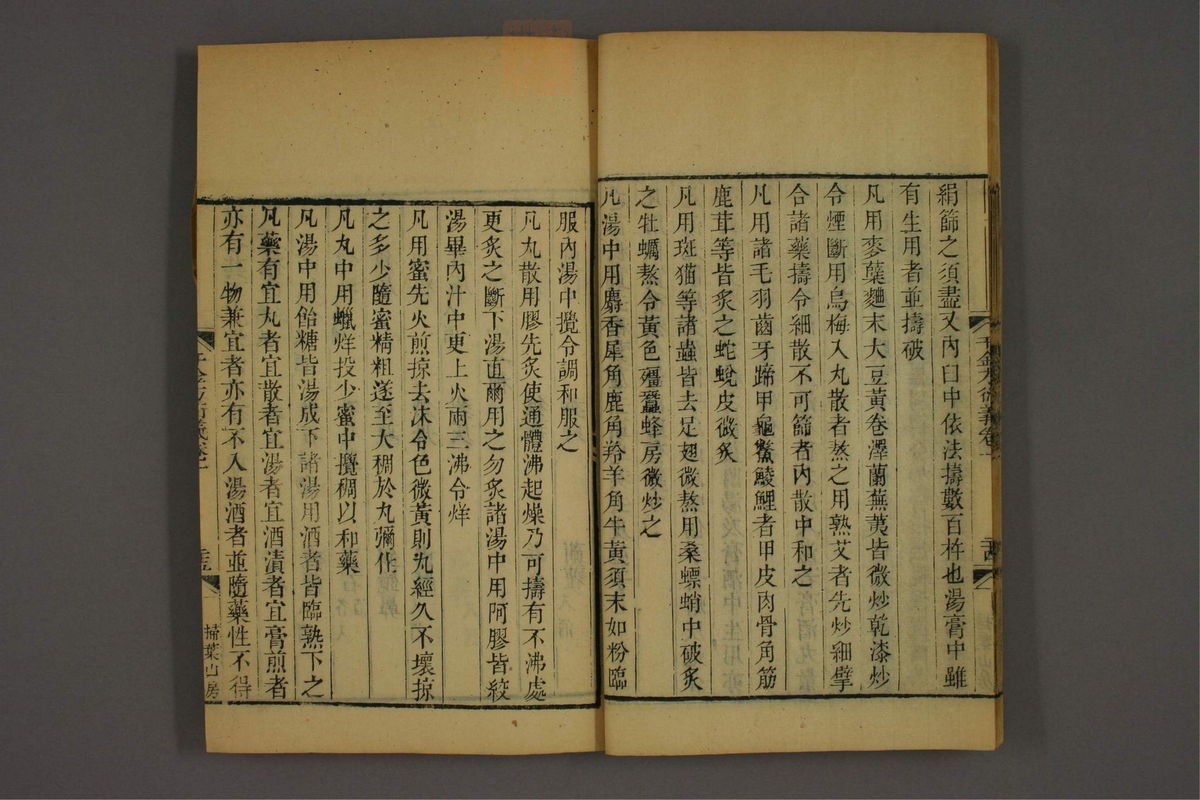 絹篩之須盡又內臼中依法擣數百杵也湯膏中雖
有生用者並擣破
凡用麥蘗麯末大豆黃卷澤蘭蕪荑皆微炒乾漆炒
令煙斷用烏梅入丸散者熬之用熟艾者先炒細擘
合諸藥擣令細散不可篩者內散中和之
凡用諸毛羽齒牙蹄甲龜鱉鯪鯉者甲皮肉骨角筋
鹿茸等皆炙之蛇蛻皮微炙
凡用斑猫等諸蟲皆去足翅微熬用桑螵蛸中破炙
之牡蠣熬令黃色殭蠶蜂房微炒之
凡湯中用麝香犀角鹿角羚羊角牛黃須末如粉臨
千金方衍義卷一
服內湯中攪令調和服之
凡丸散用膠先炙使通體沸起燥乃可擣有不沸處
更炙之斷下湯直爾用之勿炙諸湯中用阿膠皆絞
湯畢內汁中更上火兩三沸令烊
凡用蜜先火煎掠去沫令色微黃則丸經久不壞掠
之多少隨蜜精粗遂至大稠於丸彌佳
凡丸中用蠟烊投少蜜中攪稠以和藥
凡湯中用飴糖皆湯成下諸湯用酒者皆臨熟下之
凡藥有宜丸者宜散者宜湯者宜酒漬者宜膏煎者
亦有一物兼宜者亦有不入湯酒者並隨藥性不得
千金方衍義卷一
掃葉山房